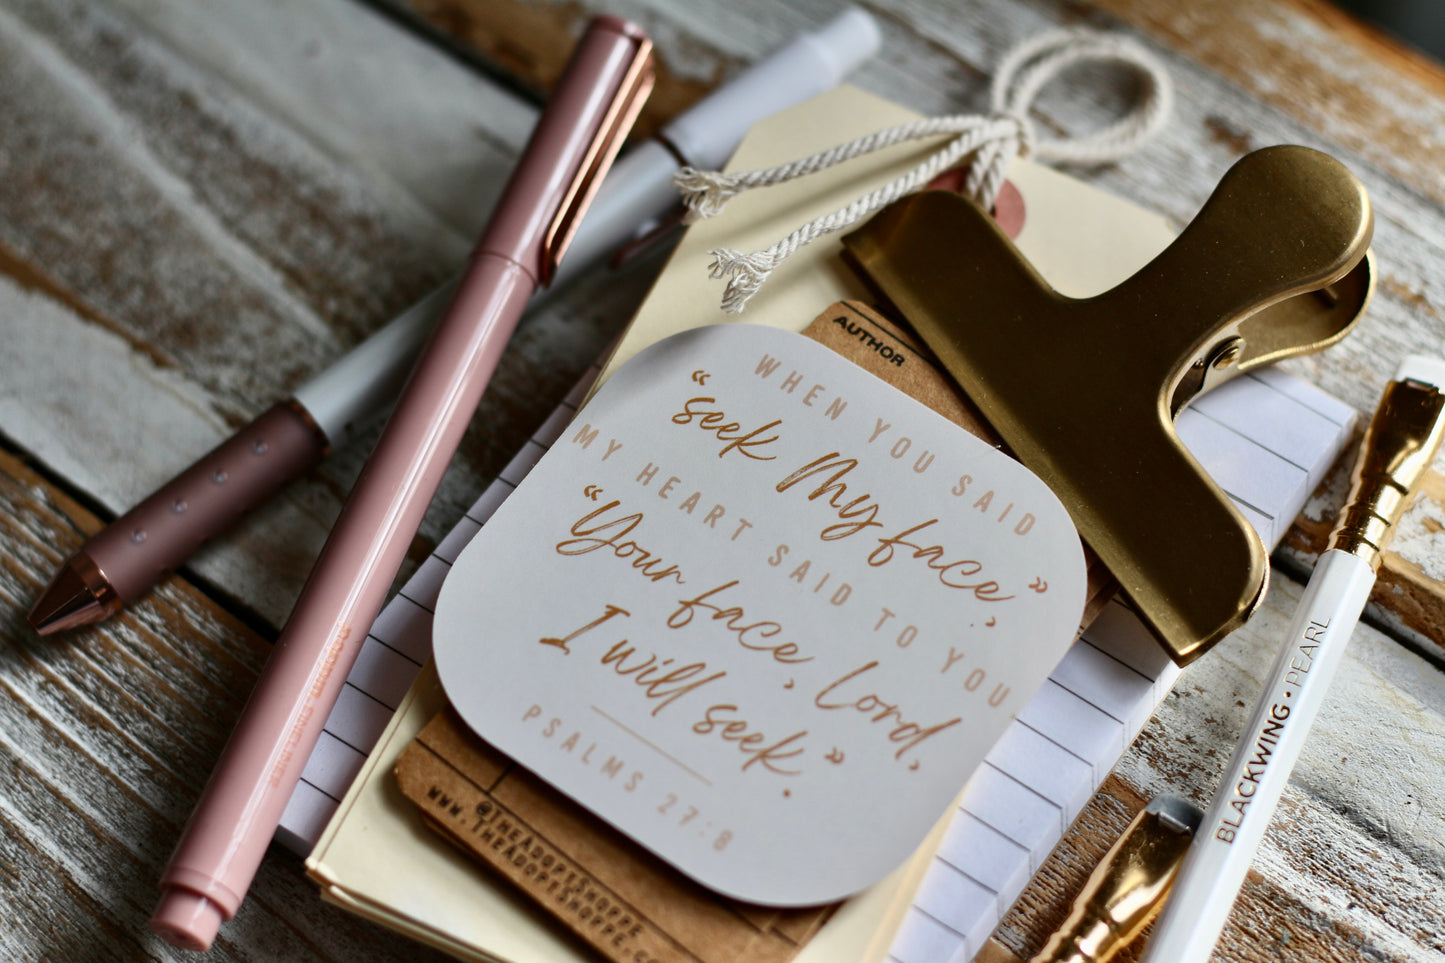 AUTHOR
WHEN YOU SAID
“seek My face,”
MY HEART SAID TO YOU
“Your face, Lord,
I will seek.”
PSALMS 27:8
@THEADOPTSHOPPE
WWW.THEADOPTSHOPPE.CO
BLACKWING • PEARL